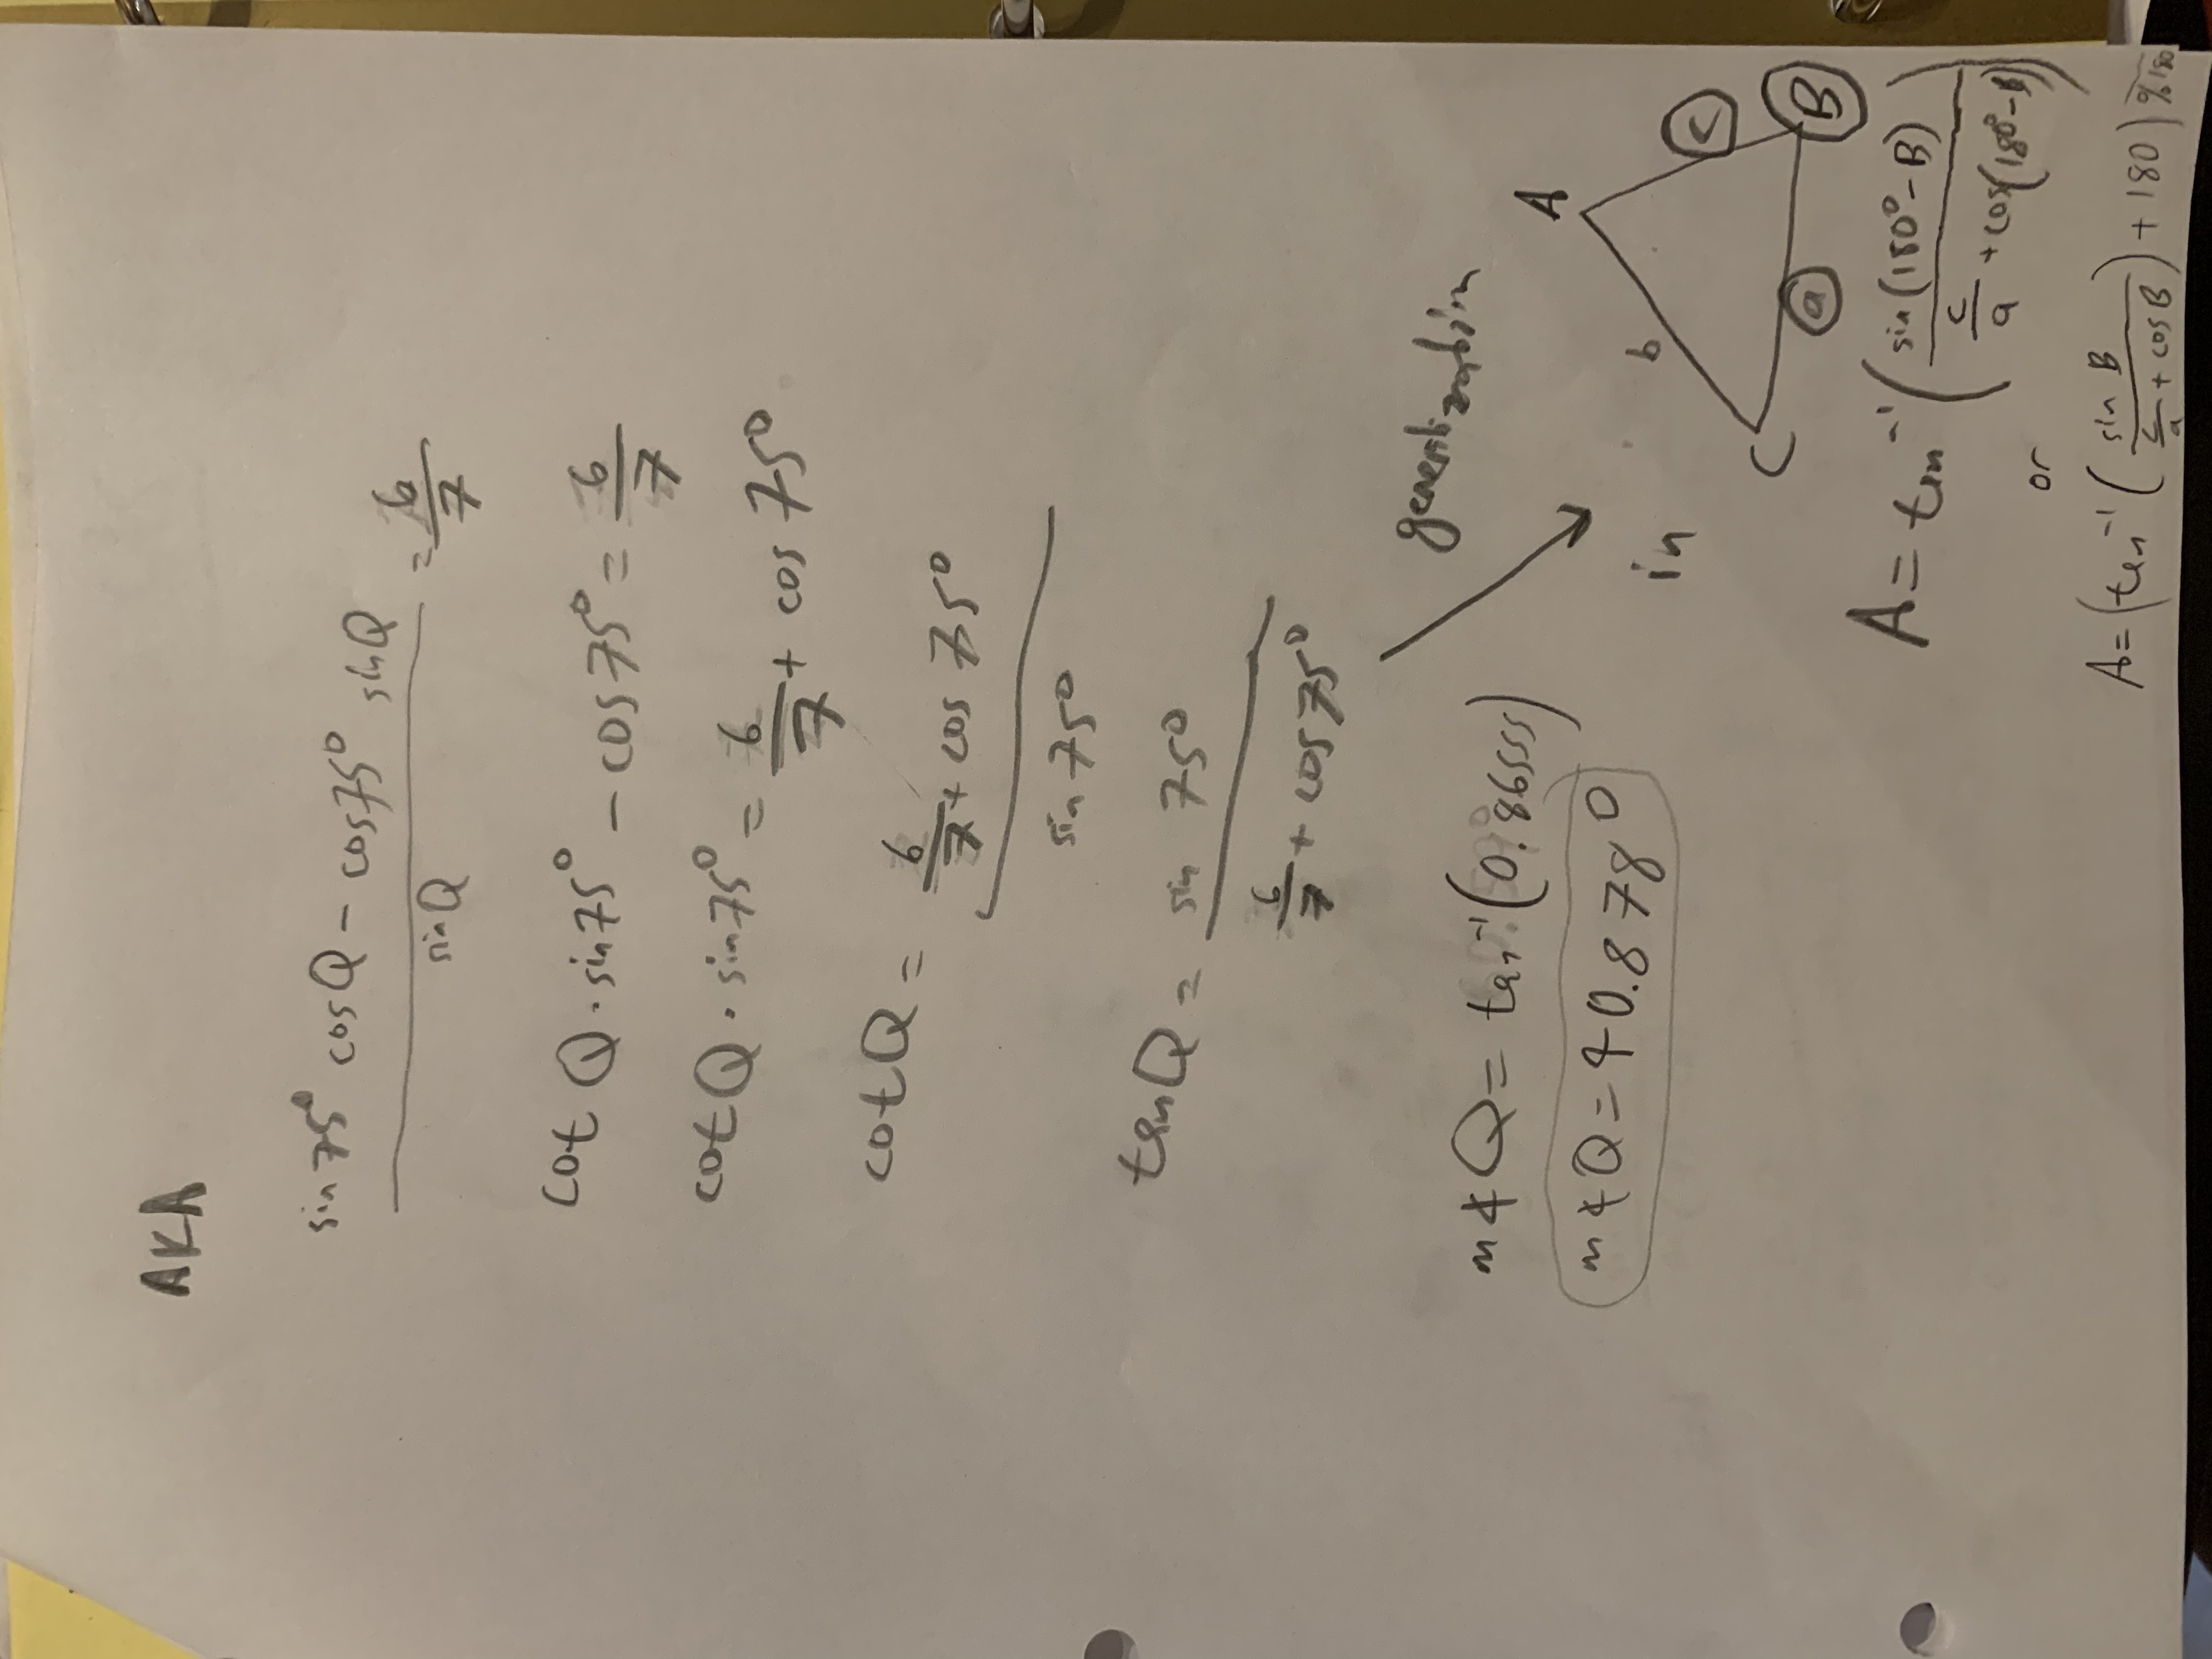 AKA
(sin 75° cos Q - cos 75° sin Q) / sin Q = 6/7
cot Q · sin 75° - cos 75° = 6/7
cot Q · sin 75° = 6/7 + cos 75°
cot Q = (6/7 + cos 75°) / sin 75°
tan Q = sin 75° / (6/7 + cos 75°)
generalization
m∡Q = tan⁻¹(0.86555)
m∡Q = 40.878°
in
A
b
c
C
a
B
A = tan⁻¹(sin(180° - B) / (c/a + cos(180° - B)))
or
A = (tan⁻¹(sin B / (c/a + cos B)) + 180) % 180